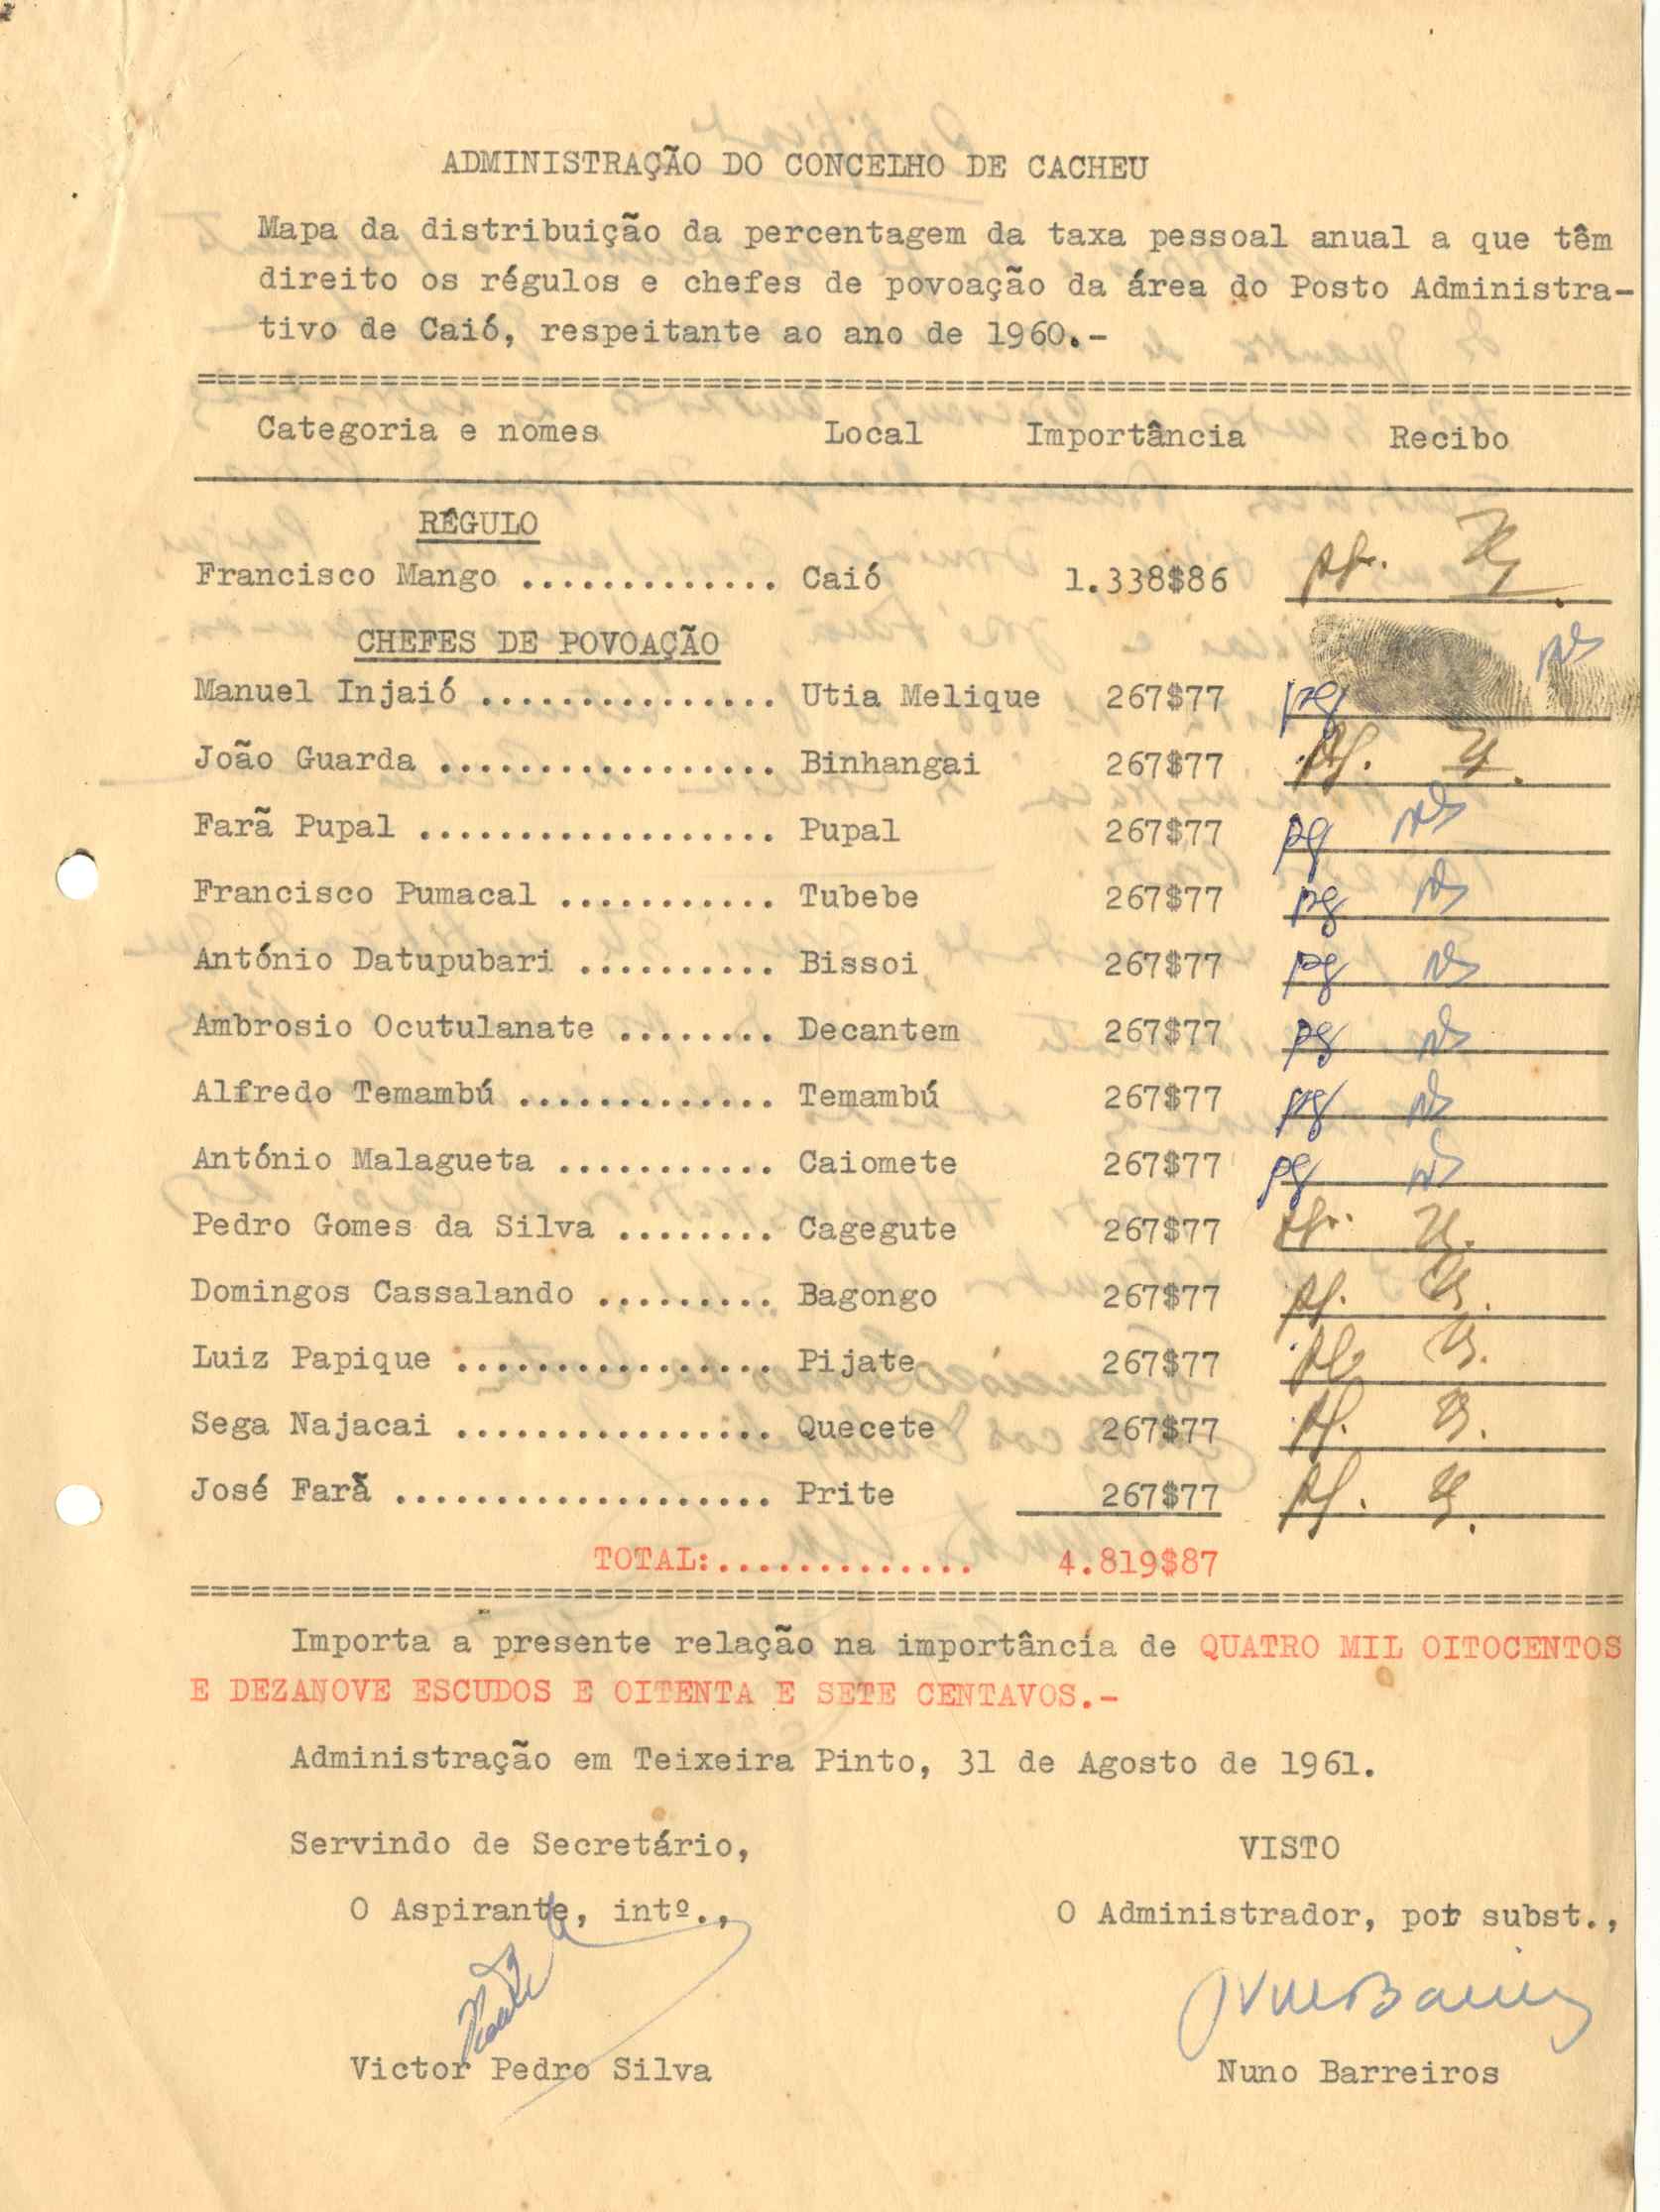 ADMINISTRAÇÃO DO CONCELHO DE CACHEU
Mapa da distribuição da percentagem da taxa pessoal anual a que têm
direito os régulos e chefes de povoação da área do Posto Administra-
tivo de Caió, respeitante ao ano de 1960.-
Categoria e nomes Local Importância Recibo
RÉGULO
Francisco Mango ............. Caió 1.338$86
CHEFES DE POVOAÇÃO
Manuel Injaió ............... Utia Melique 267$77 pg
João Guarda ................. Binhangai 267$77
Farã Pupal .................. Pupal 267$77 pg
Francisco Pumacal ........... Tubebe 267$77 pg
António Datupubari .......... Bissoi 267$77 pg
Ambrosio Ocutulanate ........ Decantem 267$77 pg
Alfredo Temambú ............. Temambú 267$77 pg
António Malagueta ........... Caiomete 267$77 pg
Pedro Gomes da Silva ........ Cagegute 267$77
Domingos Cassalando ......... Bagongo 267$77
Luiz Papique ................ Pijate 267$77
Sega Najacai ................ Quecete 267$77
José Farã ................... Prite 267$77
TOTAL:............. 4.819$87
Importa a presente relação na importância de QUATRO MIL OITOCENTOS
E DEZANOVE ESCUDOS E OITENTA E SETE CENTAVOS.-
Administração em Teixeira Pinto, 31 de Agosto de 1961.
Servindo de Secretário, VISTO
O Aspirante, intº., O Administrador, por subst.,
Victor Pedro Silva Nuno Barreiros